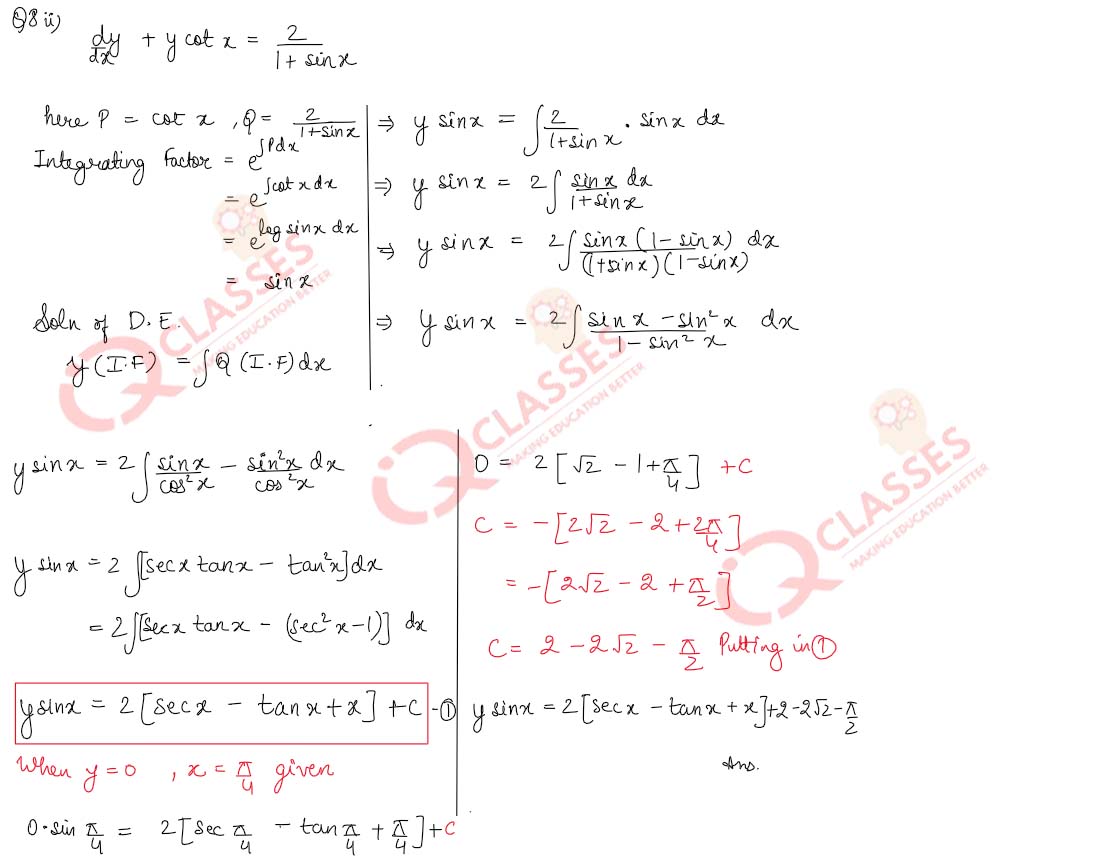 Q8 ii)
dy/dx + y cot x = 2/(1 + sinx)
here P = cot x , Q = 2/(1+sinx)
Integrating Factor = e^∫Pdx
= e^∫cot x dx
= e^log sinx dx
= sinx
Soln of D.E.
y (I.F) = ∫ Q (I.F) dx
⇒ y sinx = ∫ 2/(1+sinx) . sinx dx
⇒ y sinx = 2∫ sinx/(1+sinx) dx
⇒ y sinx = 2∫ sinx (1-sinx)/((1+sinx)(1-sinx)) dx
⇒ y sinx = 2∫ (sinx - sin²x)/(1 - sin²x) dx
y sinx = 2∫ sinx/cos²x - sin²x/cos²x dx
y sinx = 2∫[secx tanx - tan²x]dx
= 2∫[secx tanx - (sec²x-1)] dx
y sinx = 2[secx - tanx + x] + C -①
When y=0 , x = π/4 given
0·sin π/4 = 2[sec π/4 - tan π/4 + π/4] + C
0 = 2[√2 - 1 + π/4] + C
C = -[2√2 - 2 + 2π/4]
= -[2√2 - 2 + π/2]
C = 2 - 2√2 - π/2 Putting in ①
y sinx = 2[secx - tanx + x] + 2 - 2√2 - π/2
Ans.
iQ CLASSES
MAKING EDUCATION BETTER
iQ CLASSES
MAKING EDUCATION BETTER
iQ CLASSES
MAKING EDUCATION BETTER